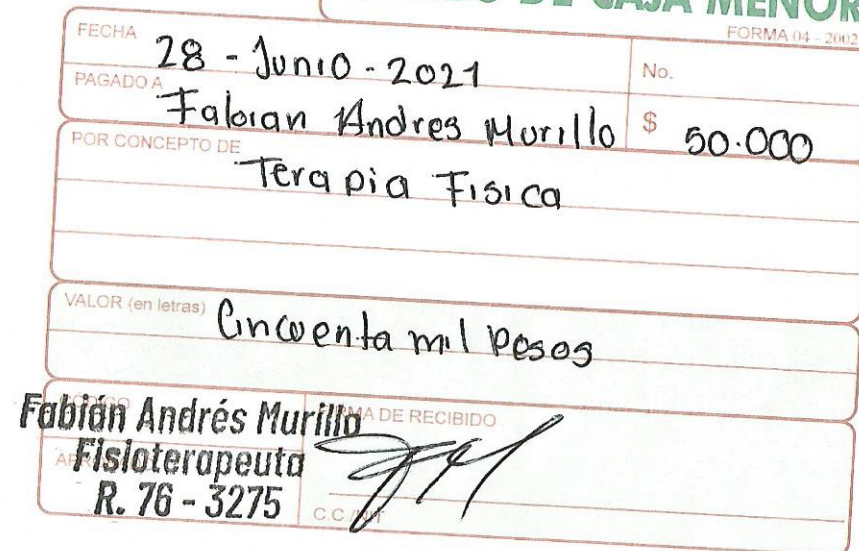 DE CAJA MENOR
FORMA 04 - 2002
FECHA 28 - Junio - 2021
No.
PAGADO A Fabian Andres Murillo $ 50.000
POR CONCEPTO DE Terapia Fisica
VALOR (en letras) Cincuenta mil Pesos
Fabián Andrés Murillo
DE RECIBIDO
Fisioterapeuta
R. 76 - 3275
C.C